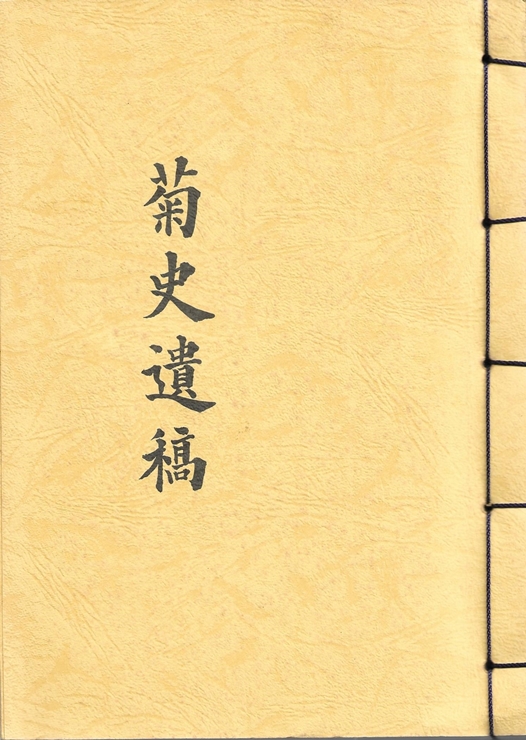 菊史遺稿